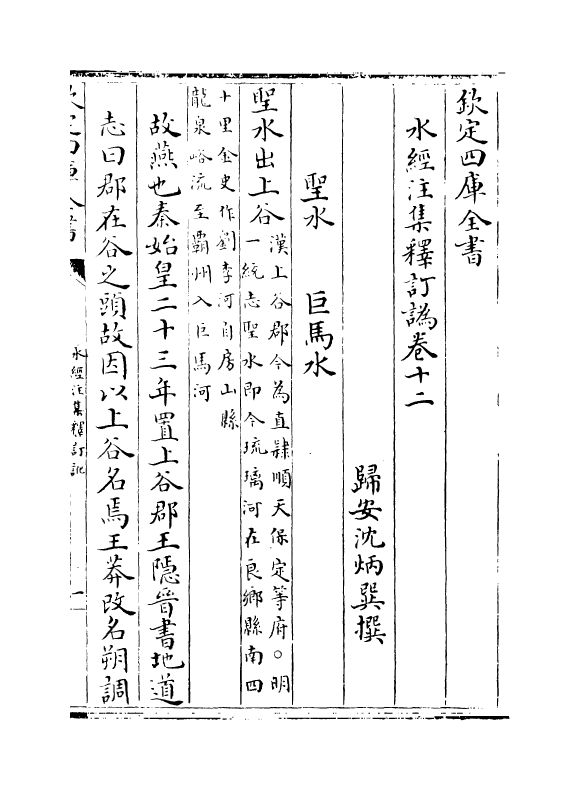 欽定四庫全書
水經注集釋訂譌卷十二
歸安沈炳巽撰
聖水 巨馬水
聖水出上谷漢上谷郡今為直隸順天保定等府○明
一統志聖水即今琉璃河在良鄉縣南四
十里金史作劉李河自房山縣
龍泉峪流至霸州入巨馬河
故燕也秦始皇二十三年置上谷郡王隱晉書地道
志曰郡在谷之頭故因以上谷名焉王莽改名朔調
欽定四庫全書
水經注集釋訂訛
一